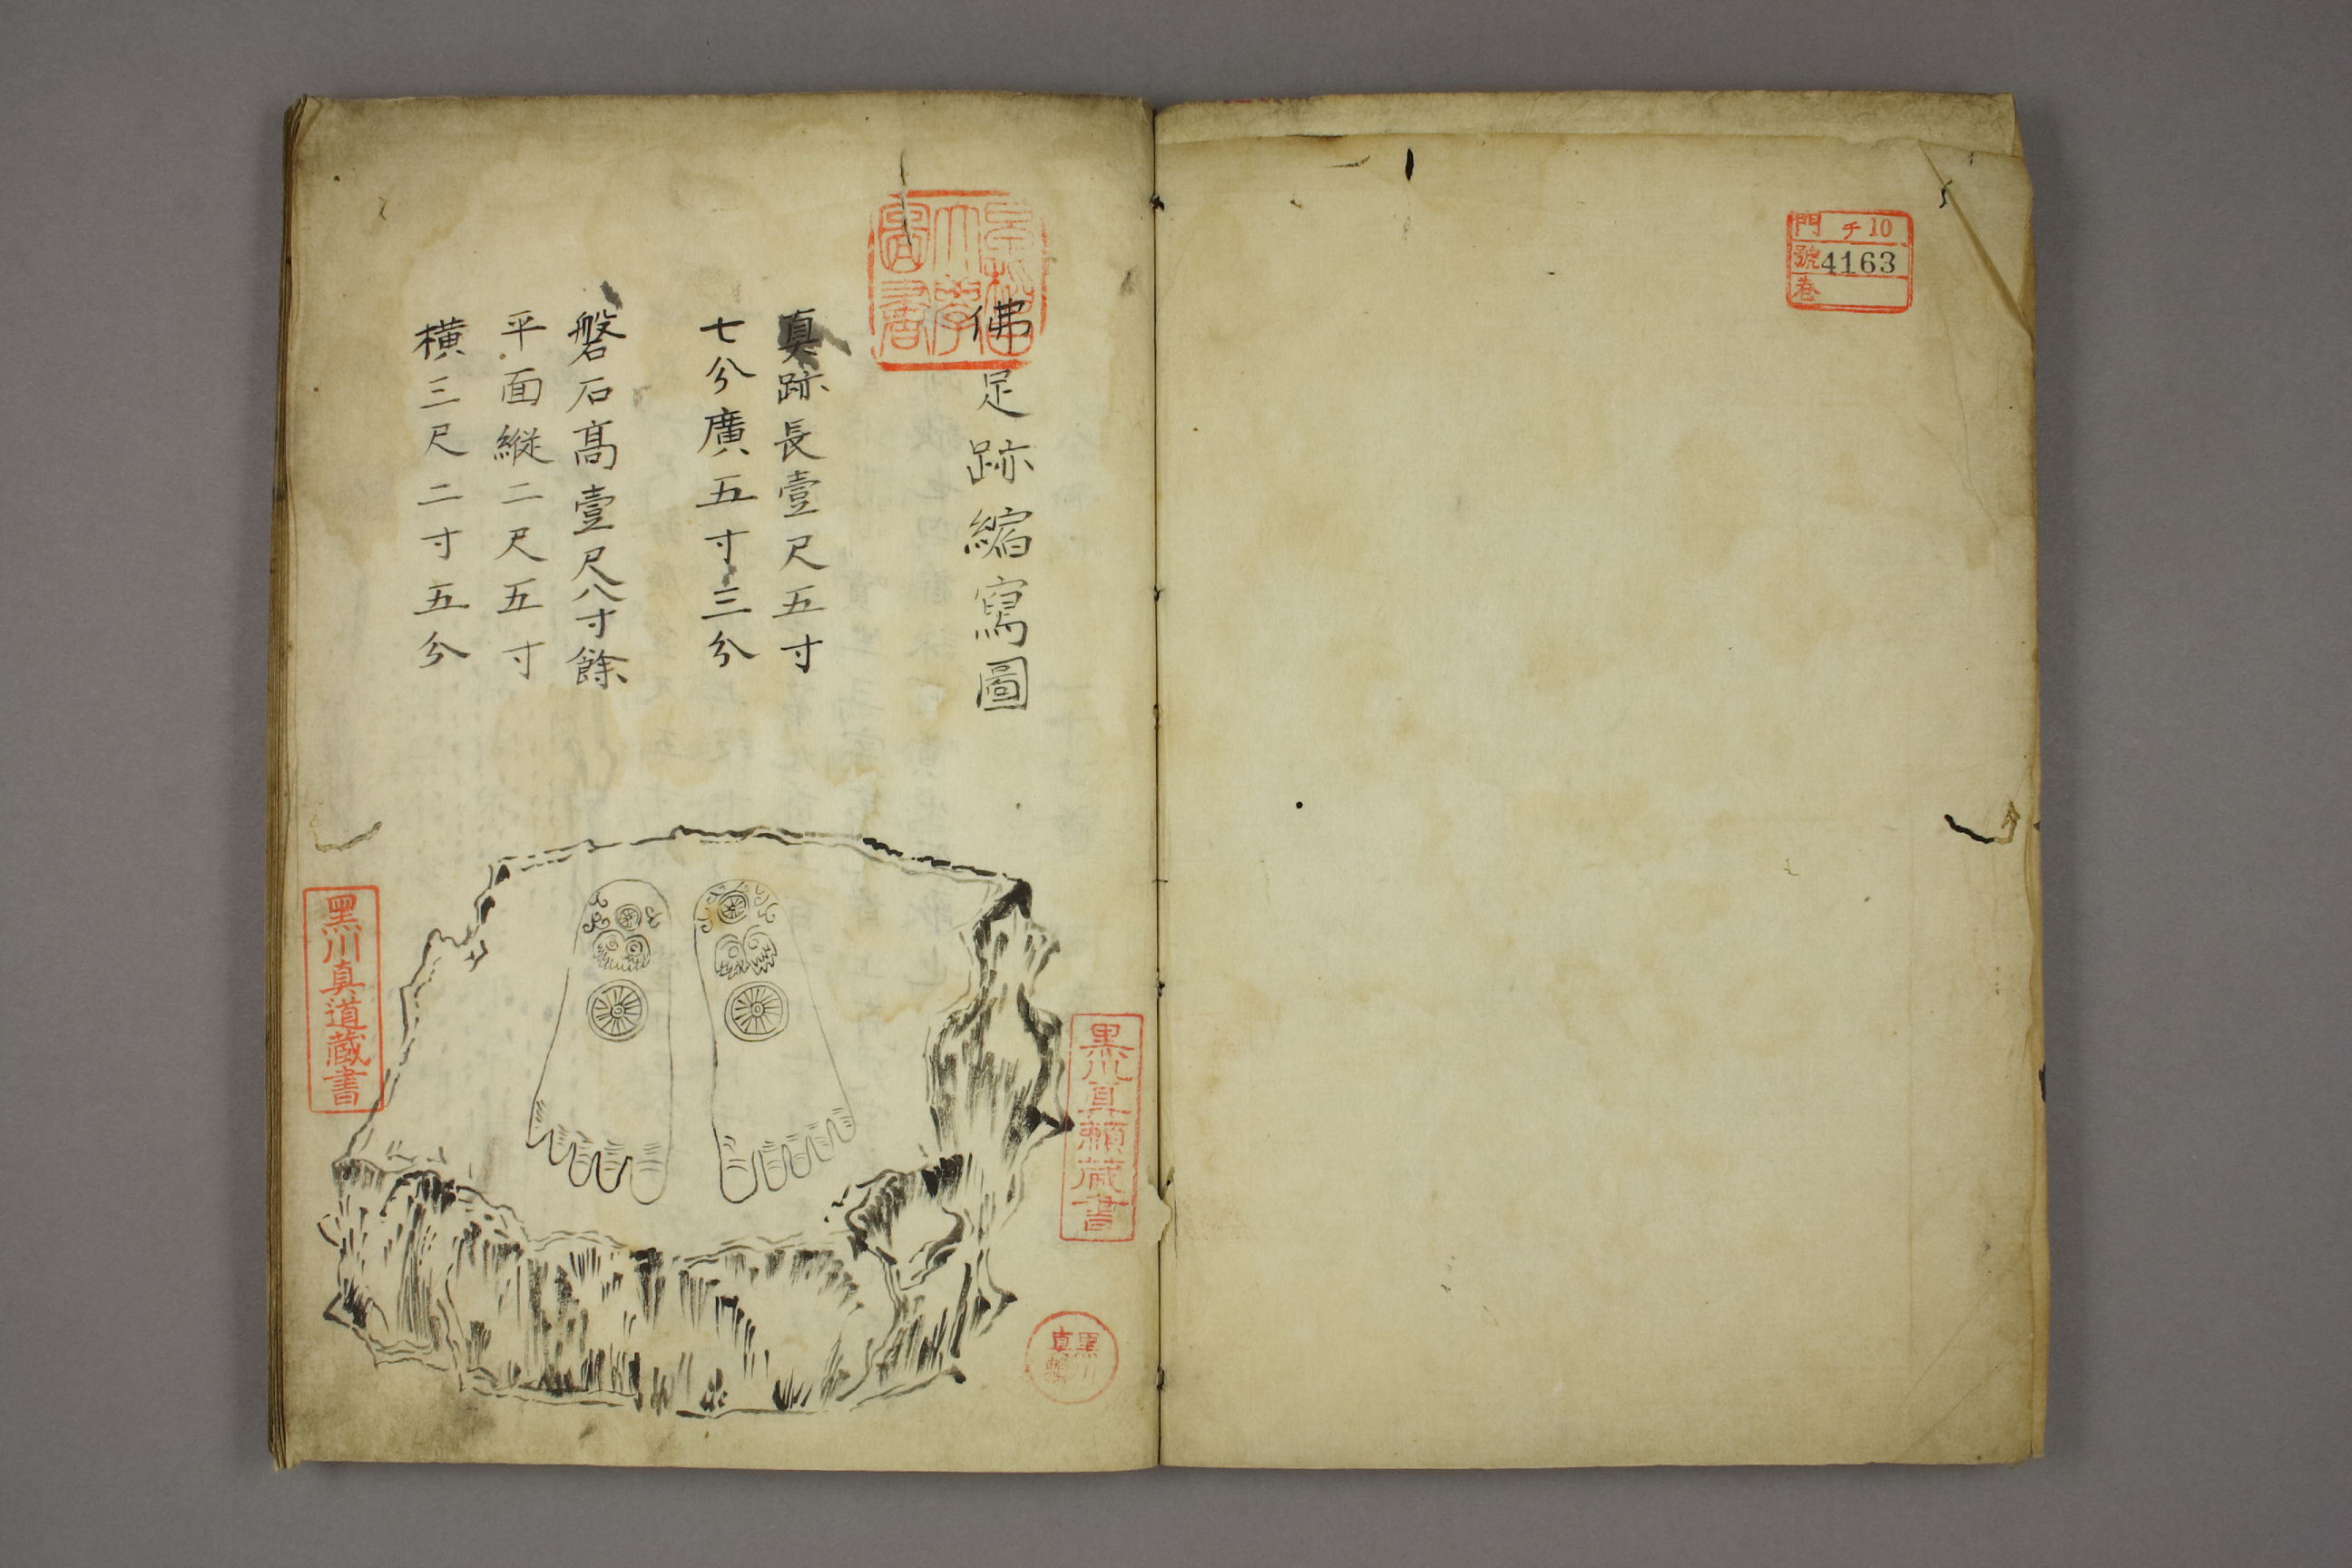 門 チ10
號 4163
巻
早稲田大學圖書
佛足跡縮寫圖
真跡長壹尺五寸
七分廣五寸三分
磐石高壹尺八寸餘
平面縦二尺五寸
横三尺二寸五分
黒川真頼蔵書
黒川真頼
黒川真道蔵書